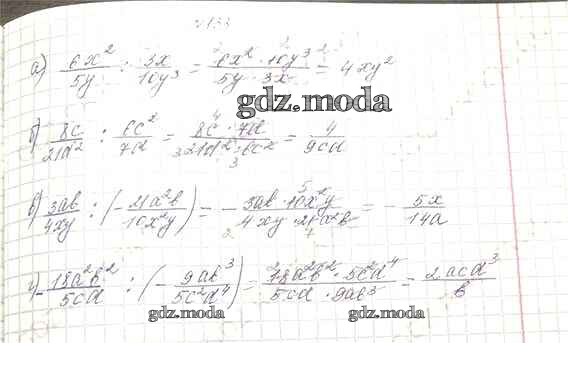 №133
а) 6x²/5y : 3x/10y³ = 6x² · 10y³/5y · 3x = 4xy²
gdz.moda
б) 8c/21d² : 6c²/7d = 8c · 7d/21d² · 6c² = 4/9cd
в) 3ab/4xy : (- 21a²b/10x²y) = - 3ab · 10x²y/4xy · 21a²b = - 5x/14a
г) - 18a²b²/5cd : (- 9ab³/5c²d⁴) = 18a²b² · 5c²d⁴/5cd · 9ab³ = 2acd³/b
gdz.moda gdz.moda